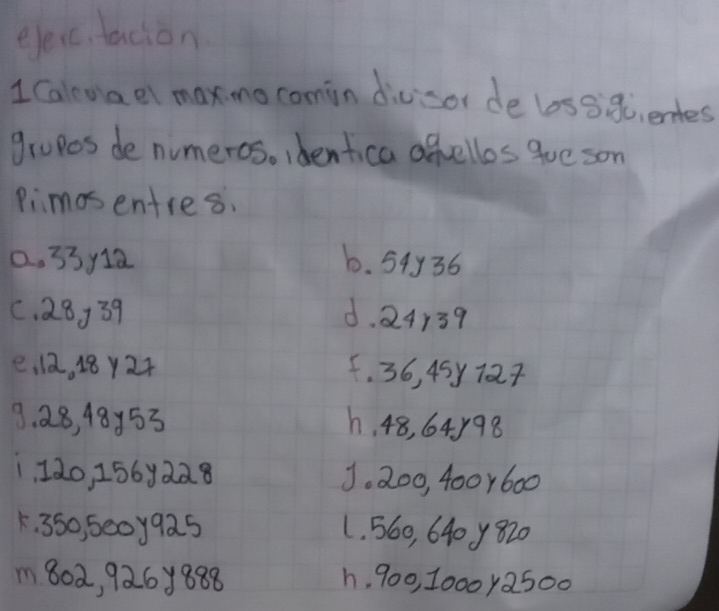 ejercitación.
1 Calcula el maximo común divisor de los siguientes
grupos de numeros. identica aquellos que son
Primos entre si.
a. 33 y 12
b. 54 y 36
c. 28 y 39
d. 24 y 39
e. 12, 18 y 27
f. 36, 45 y 127
g. 28, 48 y 53
h. 48, 64 y 98
i. 120, 156 y 228
J. 200, 400 y 600
K. 350, 500 y 925
l. 560, 640 y 820
m. 802, 926 y 888
n. 900, 1000 y 2500